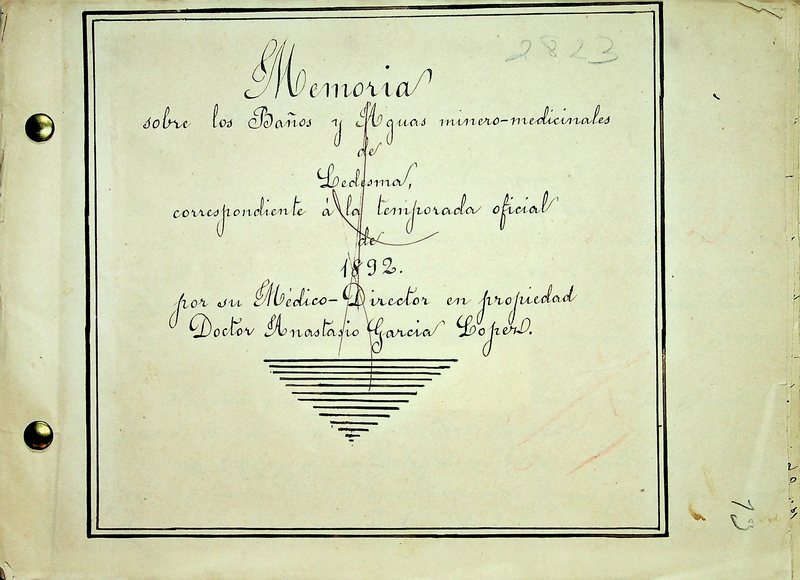 2823
Memoria
sobre los Baños y Aguas minero-medicinales
de
Ledesma,
correspondiente á la temporada oficial
de
1892.
por su Médico-Director en propiedad
Doctor Anastasio Garcia Lopez.
13